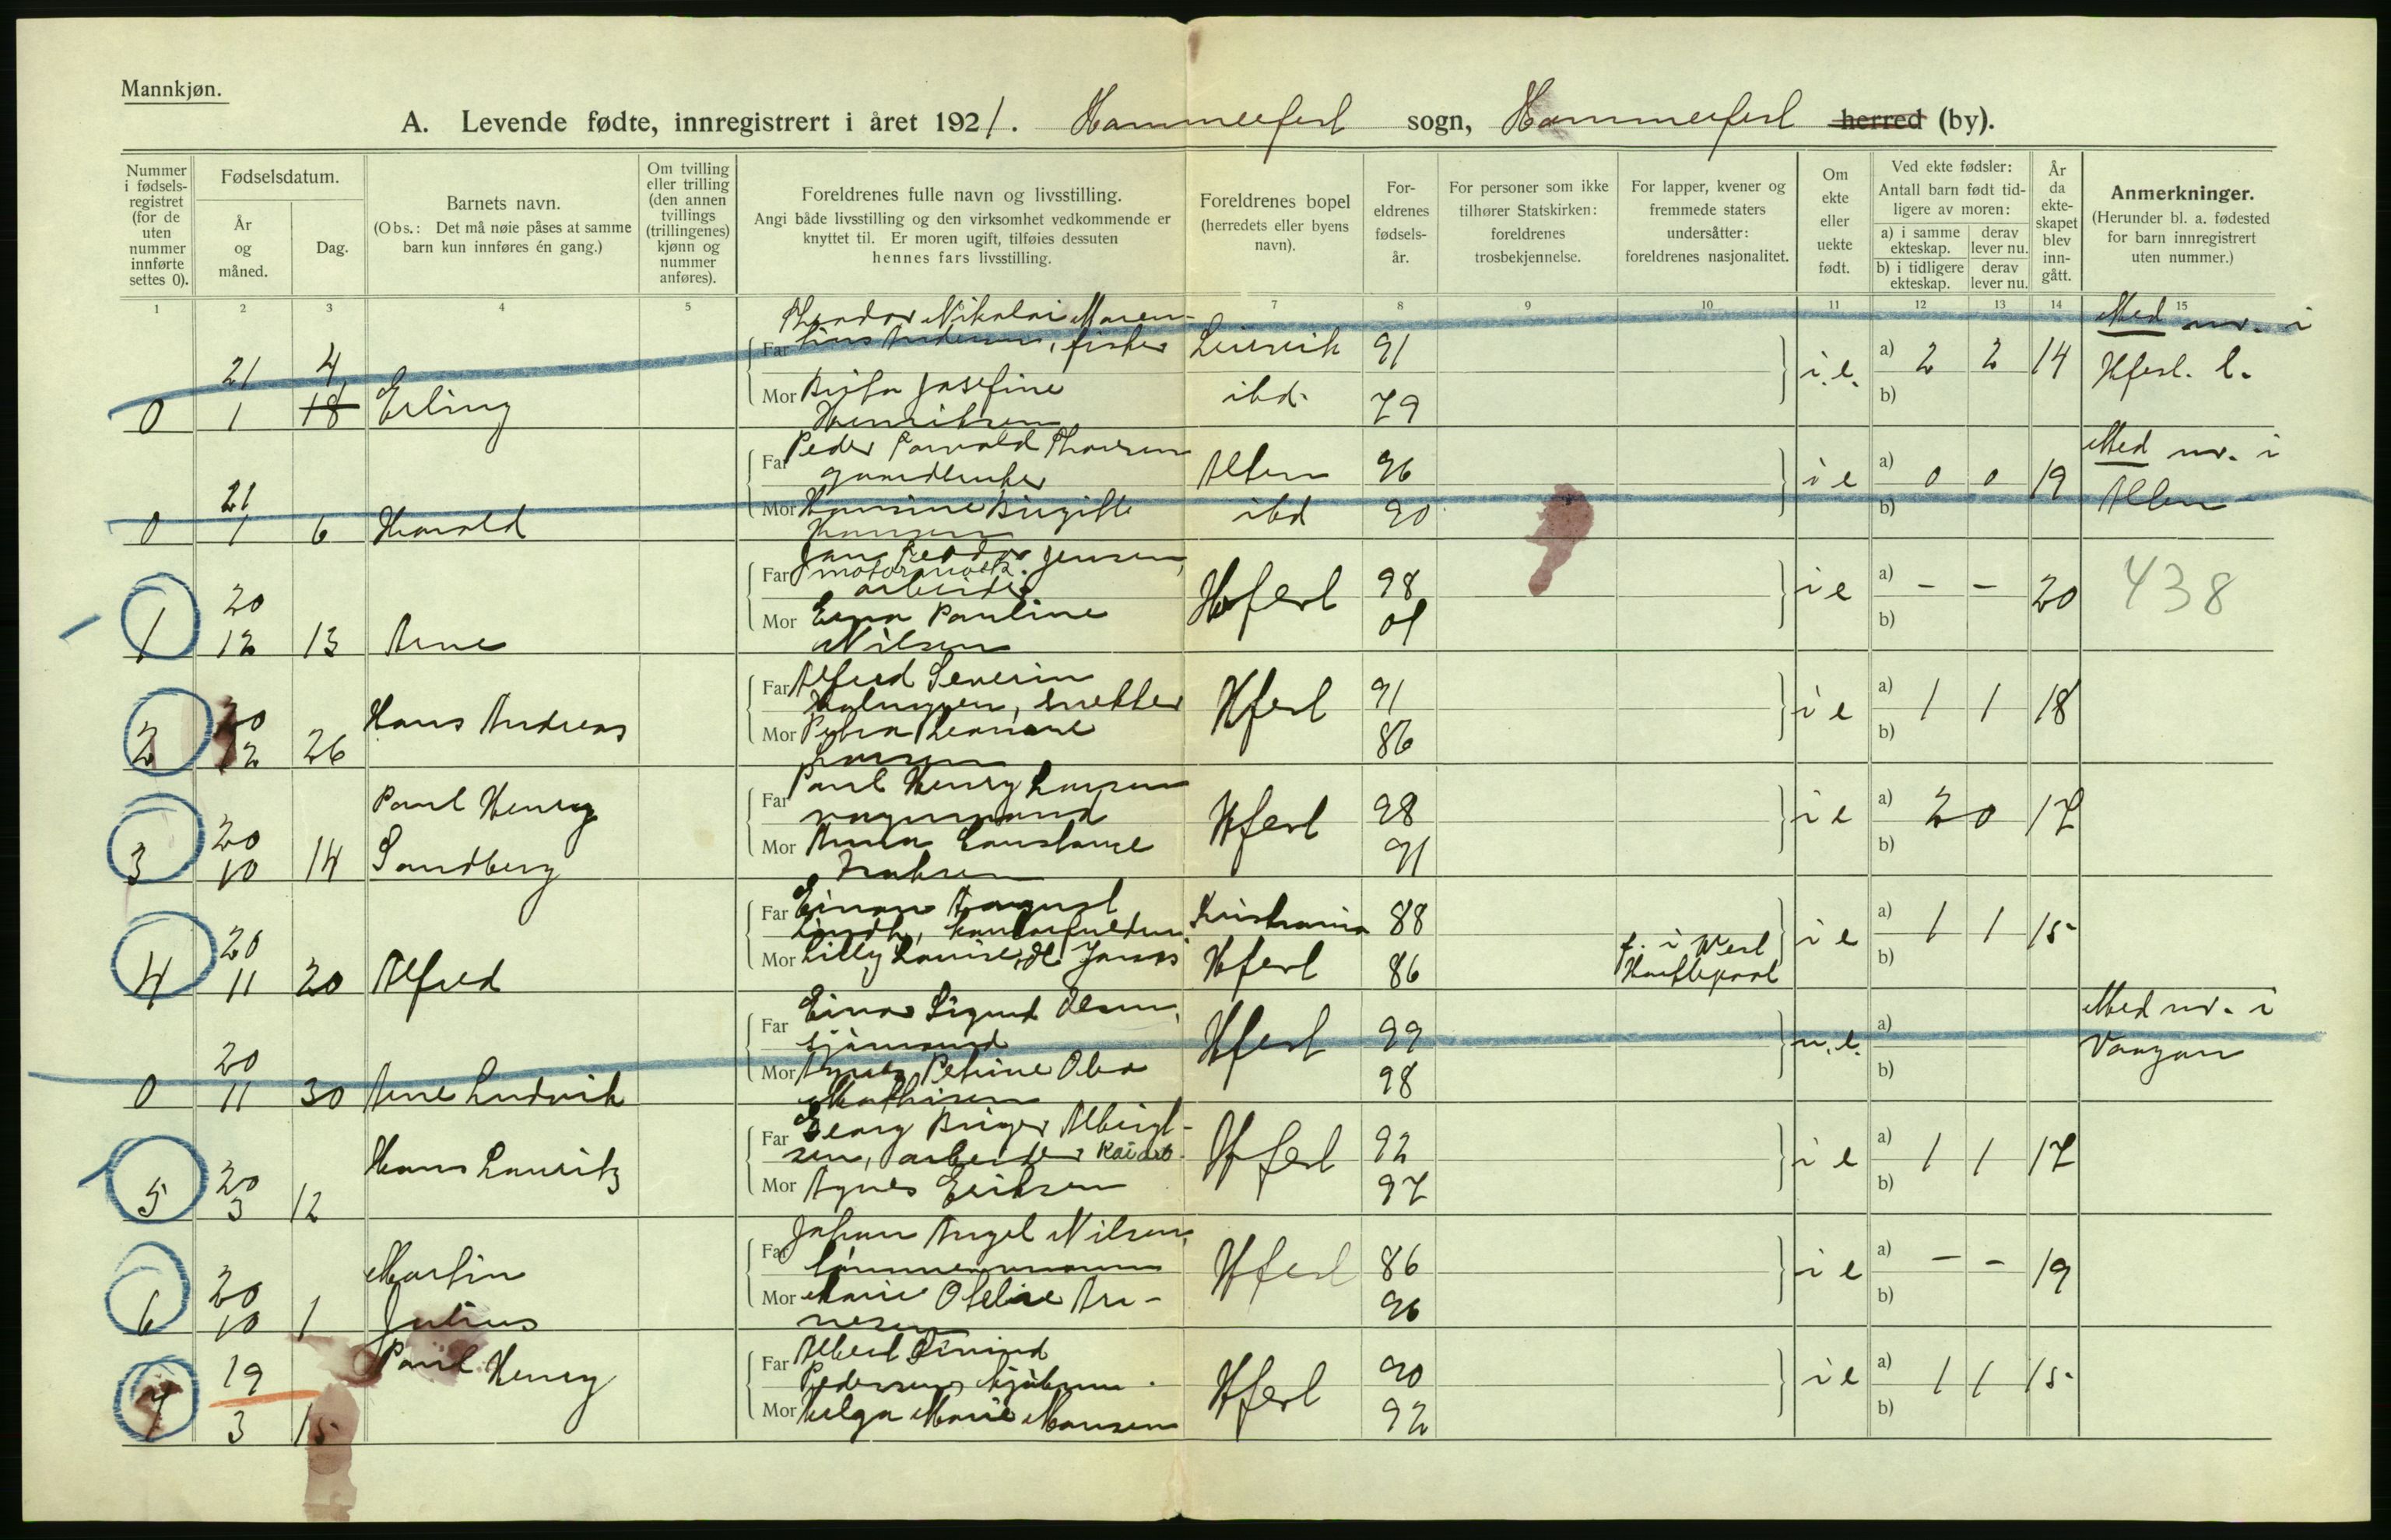 Mannkjøn.
A. Levende fødte, innregistrert i året 1921. Hammerfest sogn, Hammerfest herred (by).
Nummer i fødselsregistret (for de uten nummer innførte settes 0).
Fødselsdatum.
År og måned.
Dag.
Barnets navn.
(Obs.: Det må nøie påses at samme barn kun innføres én gang.)
Om tvilling eller trilling (den annen tvillings (trillingenes) kjønn og nummer anføres).
Foreldrenes fulle navn og livsstilling.
Angi både livsstilling og den virksomhet vedkommende er knyttet til. Er moren ugift, tilføies dessuten hennes fars livsstilling.
Foreldrenes bopel (herredets eller byens navn).
Foreldrenes fødselsår.
For personer som ikke tilhører Statskirken: foreldrenes trosbekjennelse.
For lapper, kvener og fremmede staters undersåtter: foreldrenes nasjonalitet.
Om ekte eller uekte født.
Ved ekte fødsler:
Antall barn født tidligere av moren:
a) i samme ekteskap. derav lever nu.
b) i tidligere ekteskap. derav lever nu.
År da ekteskapet blev inngått.
Anmerkninger.
(Herunder bl. a. fødested for barn innregistrert uten nummer.)
1 2 3 4 5 7 8 9 10 11 12 13 14 15
0 21 1 4 18 Erling
Far Theodor Nikolai Maren- , fisker Leirvik 91
Mor Josefine Henriksen ibd. 79
i.e. a) 2 2 14 b)
Med nr. i Hfest. l.
0 21 1 6 Harald
Far Peder Thorvald gaardbruker Alten 96
Mor Hansine Birgitte Hansen ibd 90
i e a) 0 0 19 b)
Med nr. i Alten
1 20 12 13 Arne
Far Jensen, arbeider Hfest 98
Mor Erna Pauline Nilsen 01
i e a) - - 20 b)
438
2 20 12 26 Hans Andreas
Far Alfred Severin , snekker Hfest 91
Mor Petra Larsen 86
i e a) 1 1 18 b)
3 20 10 14 Paul Henry Sandberg
Far Paul Henry Larsen vognmand Hfest 98
Mor Anna Konstanse Isaksen 91
i e a) 2 0 17 b)
4 20 11 20 Alfred
Far Einar August Kristiania 88
Mor Lilly Louise Hfest 86
f. i West Hartlepool
i e a) 1 1 15 b)
0 20 11 30 Arne Ludvik
Far Einar Sigurd Olsen, sjømand Hfest 99
Mor Agnes Petrine Olea Mathisen 98
u.e. a) b)
Med nr. i Vaagan
5 20 3 12 Hans Lauritz
Far Georg Birger Albrigtsen, arbeider Hfest 92
Mor Agnes Eriksen 97
i e a) 1 1 17 b)
6 20 10 1 Martin Julius
Far Johan Angel Nilsen, tømmermann Hfest 86
Mor Marie Otelie Arnesen 96
i e a) - - 19 b)
7 19 3 15 Paul Henry
Far Albert Eivind Pedersen Hfest 90
Mor Helga Marie Hansen 92
i e a) 1 1 15 b)